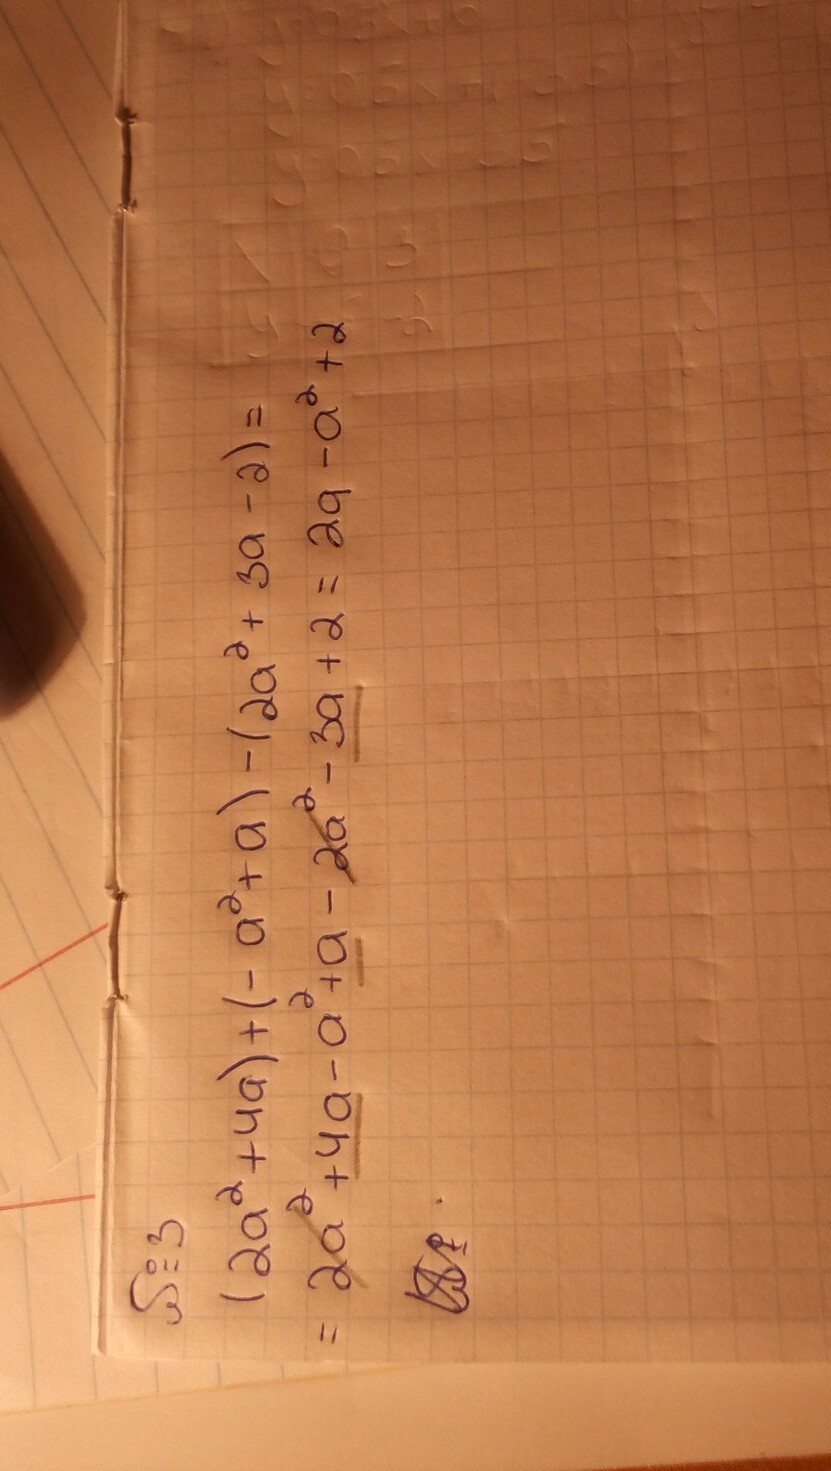 №3
(2a² + 4a) + (- a² + a) - (2a² + 3a - 2) =
= 2a² + 4a - a² + a - 2a² - 3a + 2 = 2a - a² + 2